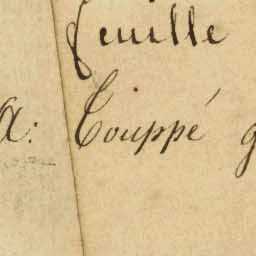 feuille
a: Couppé g